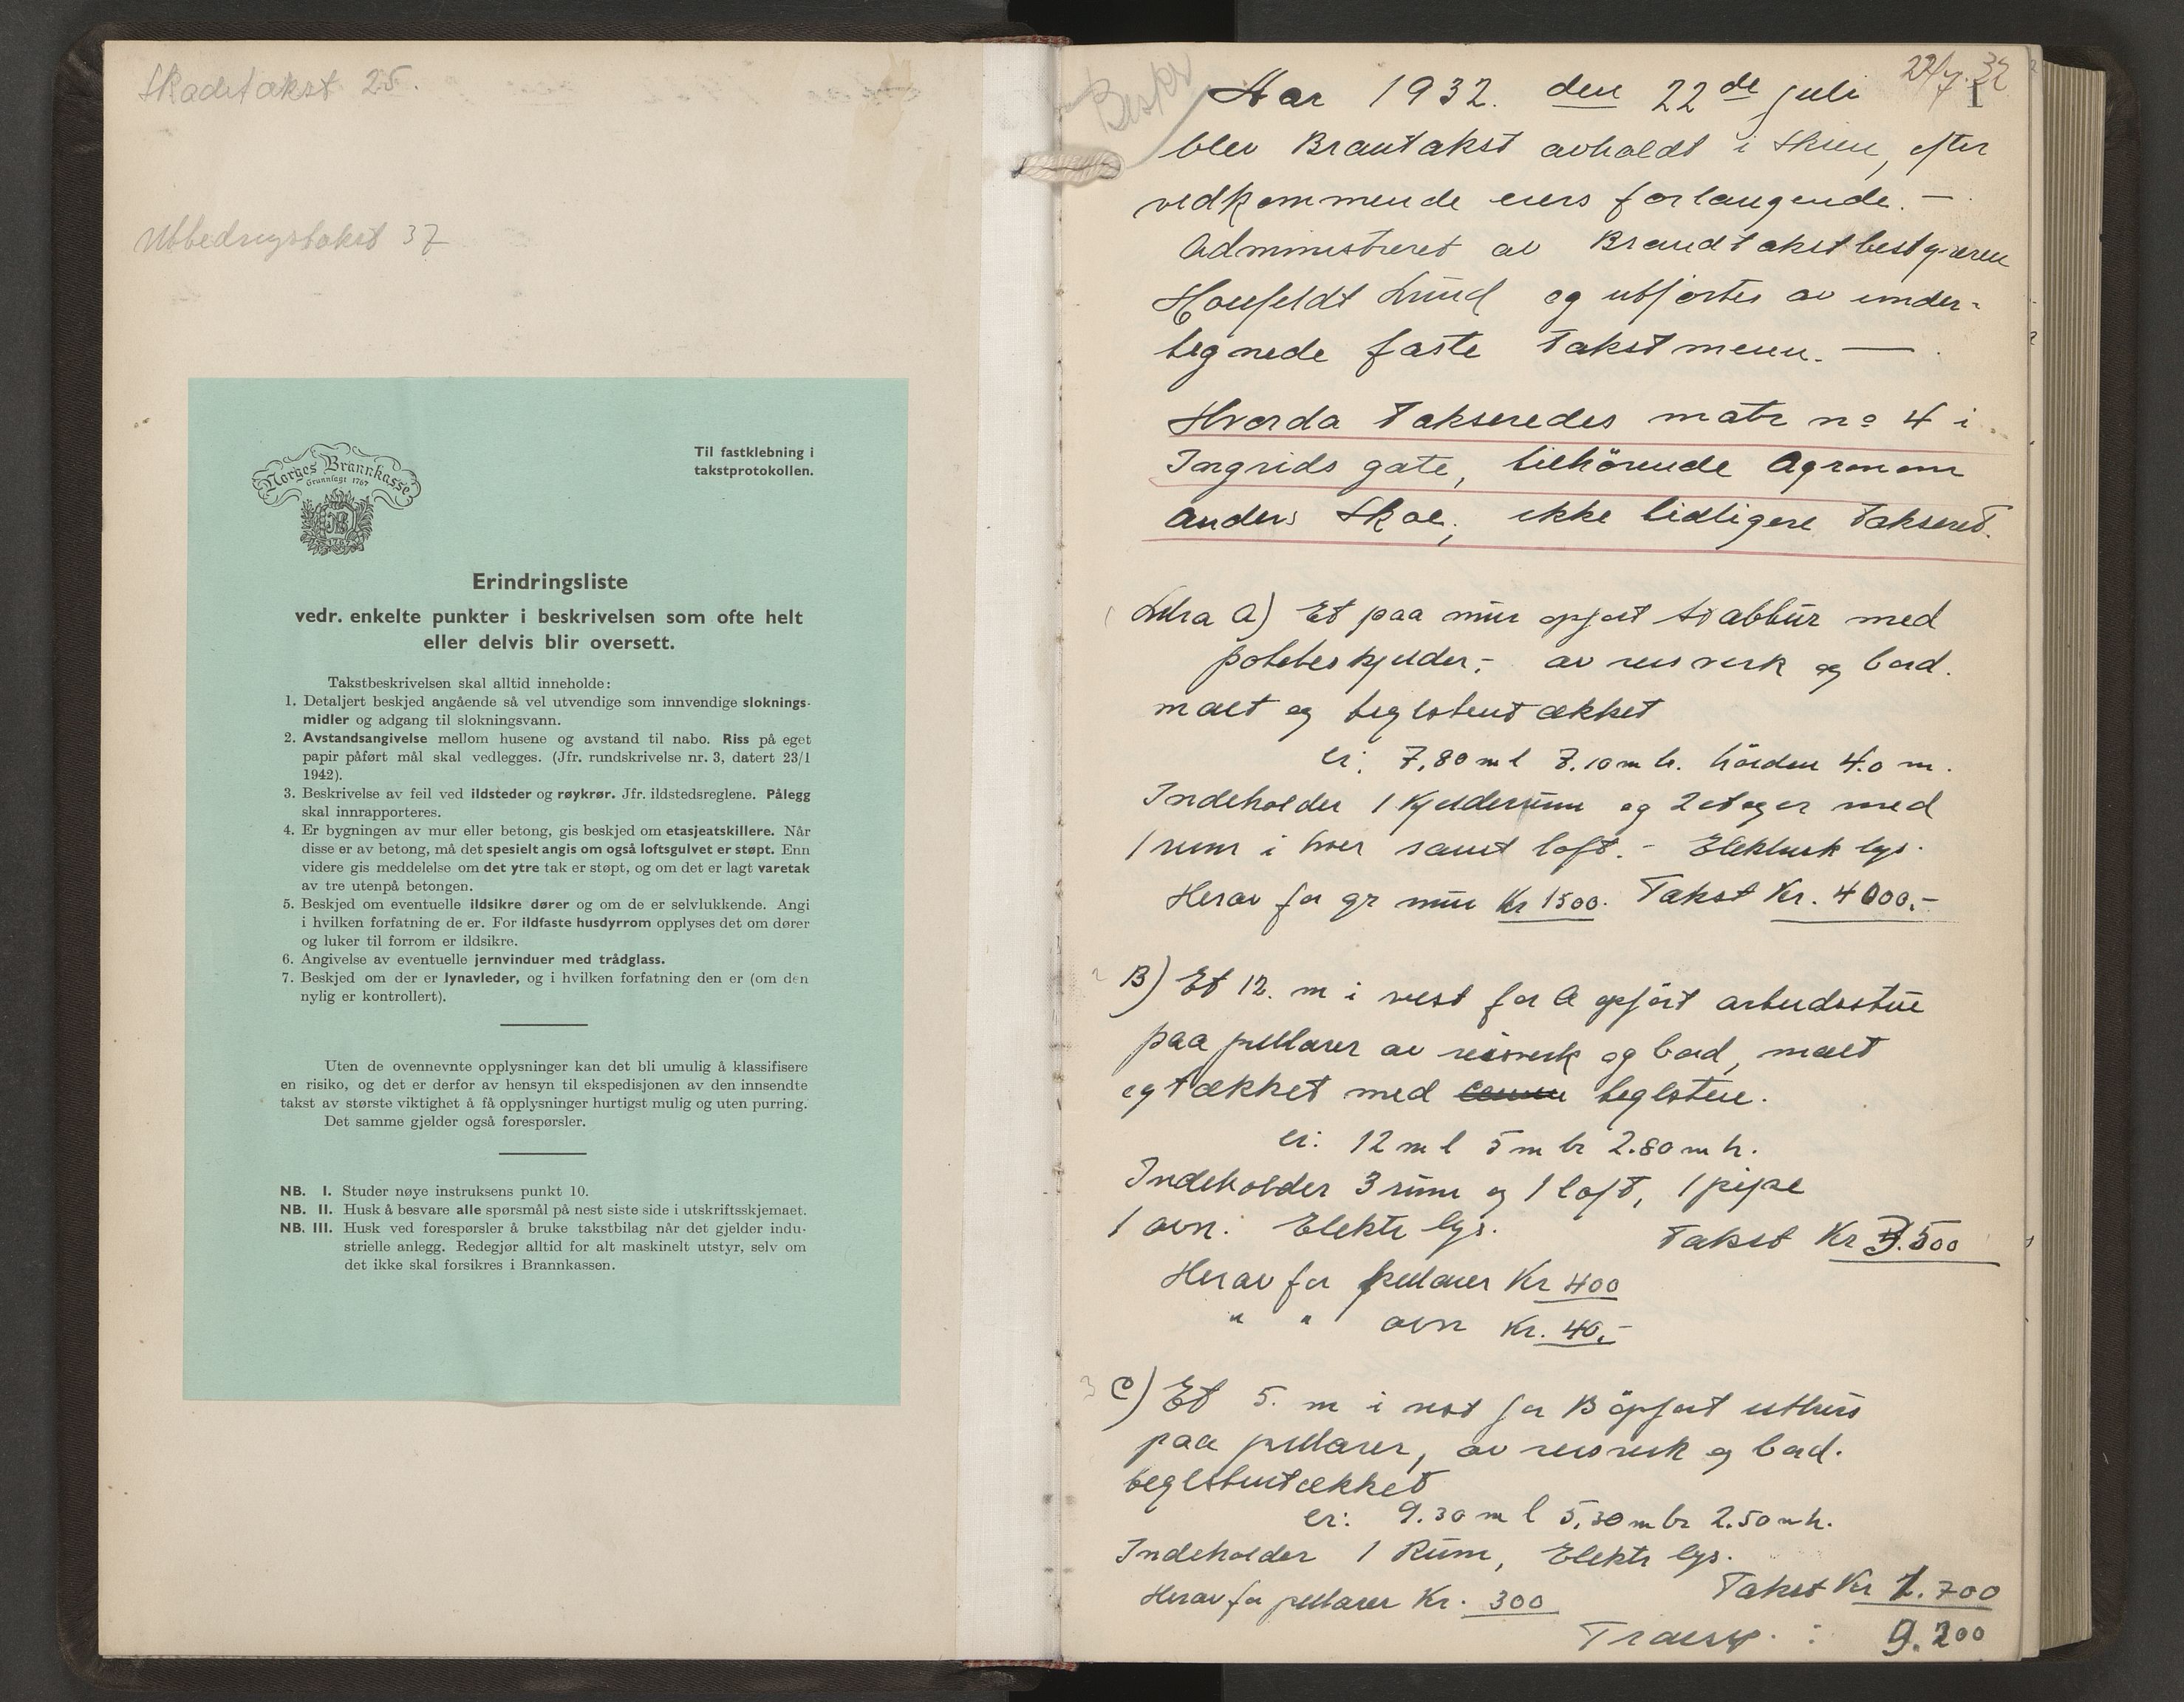 Skadetakst 25.
Utbedringstakst 37
Norges Brannkasse
Grunnlagt 1767
NB
1767
Til fastklebning i
takstprotokollen.
Erindringsliste
vedr. enkelte punkter i beskrivelsen som ofte helt
eller delvis blir oversett.
Takstbeskrivelsen skal alltid inneholde:
1. Detaljert beskjed angående så vel utvendige som innvendige sloknings-
midler og adgang til slokningsvann.
2. Avstandsangivelse mellom husene og avstand til nabo. Riss på eget
papir påført mål skal vedlegges. (Jfr. rundskrivelse nr. 3, datert 23/1
1942).
3. Beskrivelse av feil ved ildsteder og røykrør. Jfr. ildstedsreglene. Pålegg
skal innrapporteres.
4. Er bygningen av mur eller betong, gis beskjed om etasjeatskillere. Når
disse er av betong, må det spesielt angis om også loftsgulvet er støpt. Enn
videre gis meddelelse om det ytre tak er støpt, og om det er lagt varetak
av tre utenpå betongen.
5. Beskjed om eventuelle ildsikre dører og om de er selvlukkende. Angi
i hvilken forfatning de er. For ildfaste husdyrrom opplyses det om dører
og luker til forrom er ildsikre.
6. Angivelse av eventuelle jernvinduer med trådglass.
7. Beskjed om der er lynavleder, og i hvilken forfatning den er (om den
nylig er kontrollert).
Uten de ovennevnte opplysninger kan det bli umulig å klassifisere
en risiko, og det er derfor av hensyn til ekspedisjonen av den innsendte
takst av største viktighet å få opplysninger hurtigst mulig og uten purring.
Det samme gjelder også forespørsler.
NB. I. Studer nøye instruksens punkt 10.
NB. II. Husk å besvare alle spørsmål på nest siste side i utskriftsskjemaet.
NB. III. Husk ved forespørsler å bruke takstbilag når det gjelder indu-
strielle anlegg. Redegjør alltid for alt maskinelt utstyr, selv om
det ikke skal forsikres i Brannkassen.
Beskr
22/7.32
1
Aar 1932. den 22de juli
blev Brantakst avholdt i Skien, efter
vedkommende eiers forlangende. —
Administreret av Brandtakstbestyreren
Houfeldt Lund og utførtes av under-
tegnede faste Takstmenn. —
Hvorda Takseredes matr no 4 i
Ingrids gate, tilhörende Agronom
Anders Skoe, ikke tidligere Takseret.
Litra A) Et paa mur opført stabbur med
poteteskjelder,- av reisverk og bord.
malt og teglstentækket
er: 7,80 m l 7.10 m br. höiden 4.0 m.
Indeholder 1 Kjelderrum og 2 etager med
1 rum i hver samt loft. - Elektrisk lys.
Herav for gr mur Kr 1500. Takst Kr. 4000.-
2 B) Et 12. m i vest for A opfört arbeidsstue
paa pillarer av reisverk og bord, malt
og tækket med teglsten.
er: 12 m l 5 m br 2.80 m h.
Indeholder 3 rum og 1 loft, 1 pipe
1 ovn. Elektr lys. Takst Kr 3.500
Herav for pillarer Kr 400
" " ovn Kr. 40.-
3 C) Et 5. m i vest for B opført uthus
paa pillarer, av reisverk og bord.
teglstentækket
er: 9.30 m l 5,30 m br 2.50 m h.
Indeholder 1 Rum, Elektr lys.
Herav for pillarer Kr. 300 Takst Kr 1.700
Transp. : 9.200